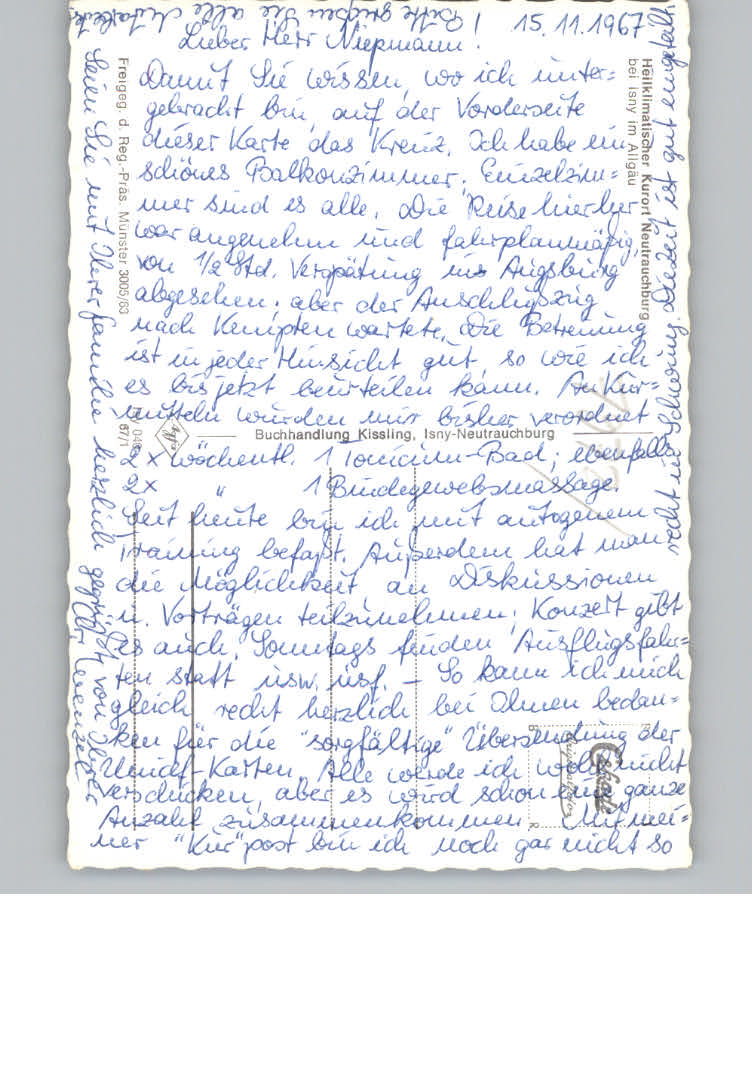 15.11.1967
Lieber Herr Niepmann!
Damit Sie wissen, wo ich unter=
gebracht bin, auf der Vorderseite
dieser Karte das Kreuz. Ich habe ein
schönes Balkonzimmer; Einzelzim=
mer sind es alle. Die Reise hierher
war angenehm und fahrplanmäßig,
von 1/2 Std. Verspätung in Augsburg
abgesehen; aber der Anschlußzug
nach Kempten wartete. Die Betreuung
ist in jeder Hinsicht gut, so wie ich
es bis jetzt beurteilen kann. An Kur=
mitteln wurden mir bisher verordnet
2 x wöchentl. 1 Tonicum-Bad; ebenfalls
2x " 1 Bindegewebsmassage.
Seit heute bin ich mit autogenem
Training befaßt. Außerdem hat man
die Möglichkeit an Diskussionen
u. Vorträgen teilzunehmen; Konzert gibt
es auch. Sonntags finden Ausflugsfahr=
ten statt usw. usf. – So kann ich mich
gleich recht herzlich bei Ihnen bedan=
ken für die "sorgfältige" Übersendung der
Unicef-Karten. Alle werde ich wohl nicht
verschicken, aber es wird schon eine ganze
Anzahl zusammenkommen. Mit mei=
ner "Kur"post bin ich noch gar nicht so
recht in Schwung. Die Zeit ist gut eingeteilt.
Seien Sie mit Ihrer Familie herzlich gegrüßt von Ihrer
Bitte grüßen Sie alle Mitarbeiter!
Heilklimatischer Kurort Neutrauchburg
bei Isny im Allgäu
Freigeg. d. Reg.-Präs. Münster 3005/63
67/1
Buchhandlung Kissling, Isny-Neutrauchburg
Cekade